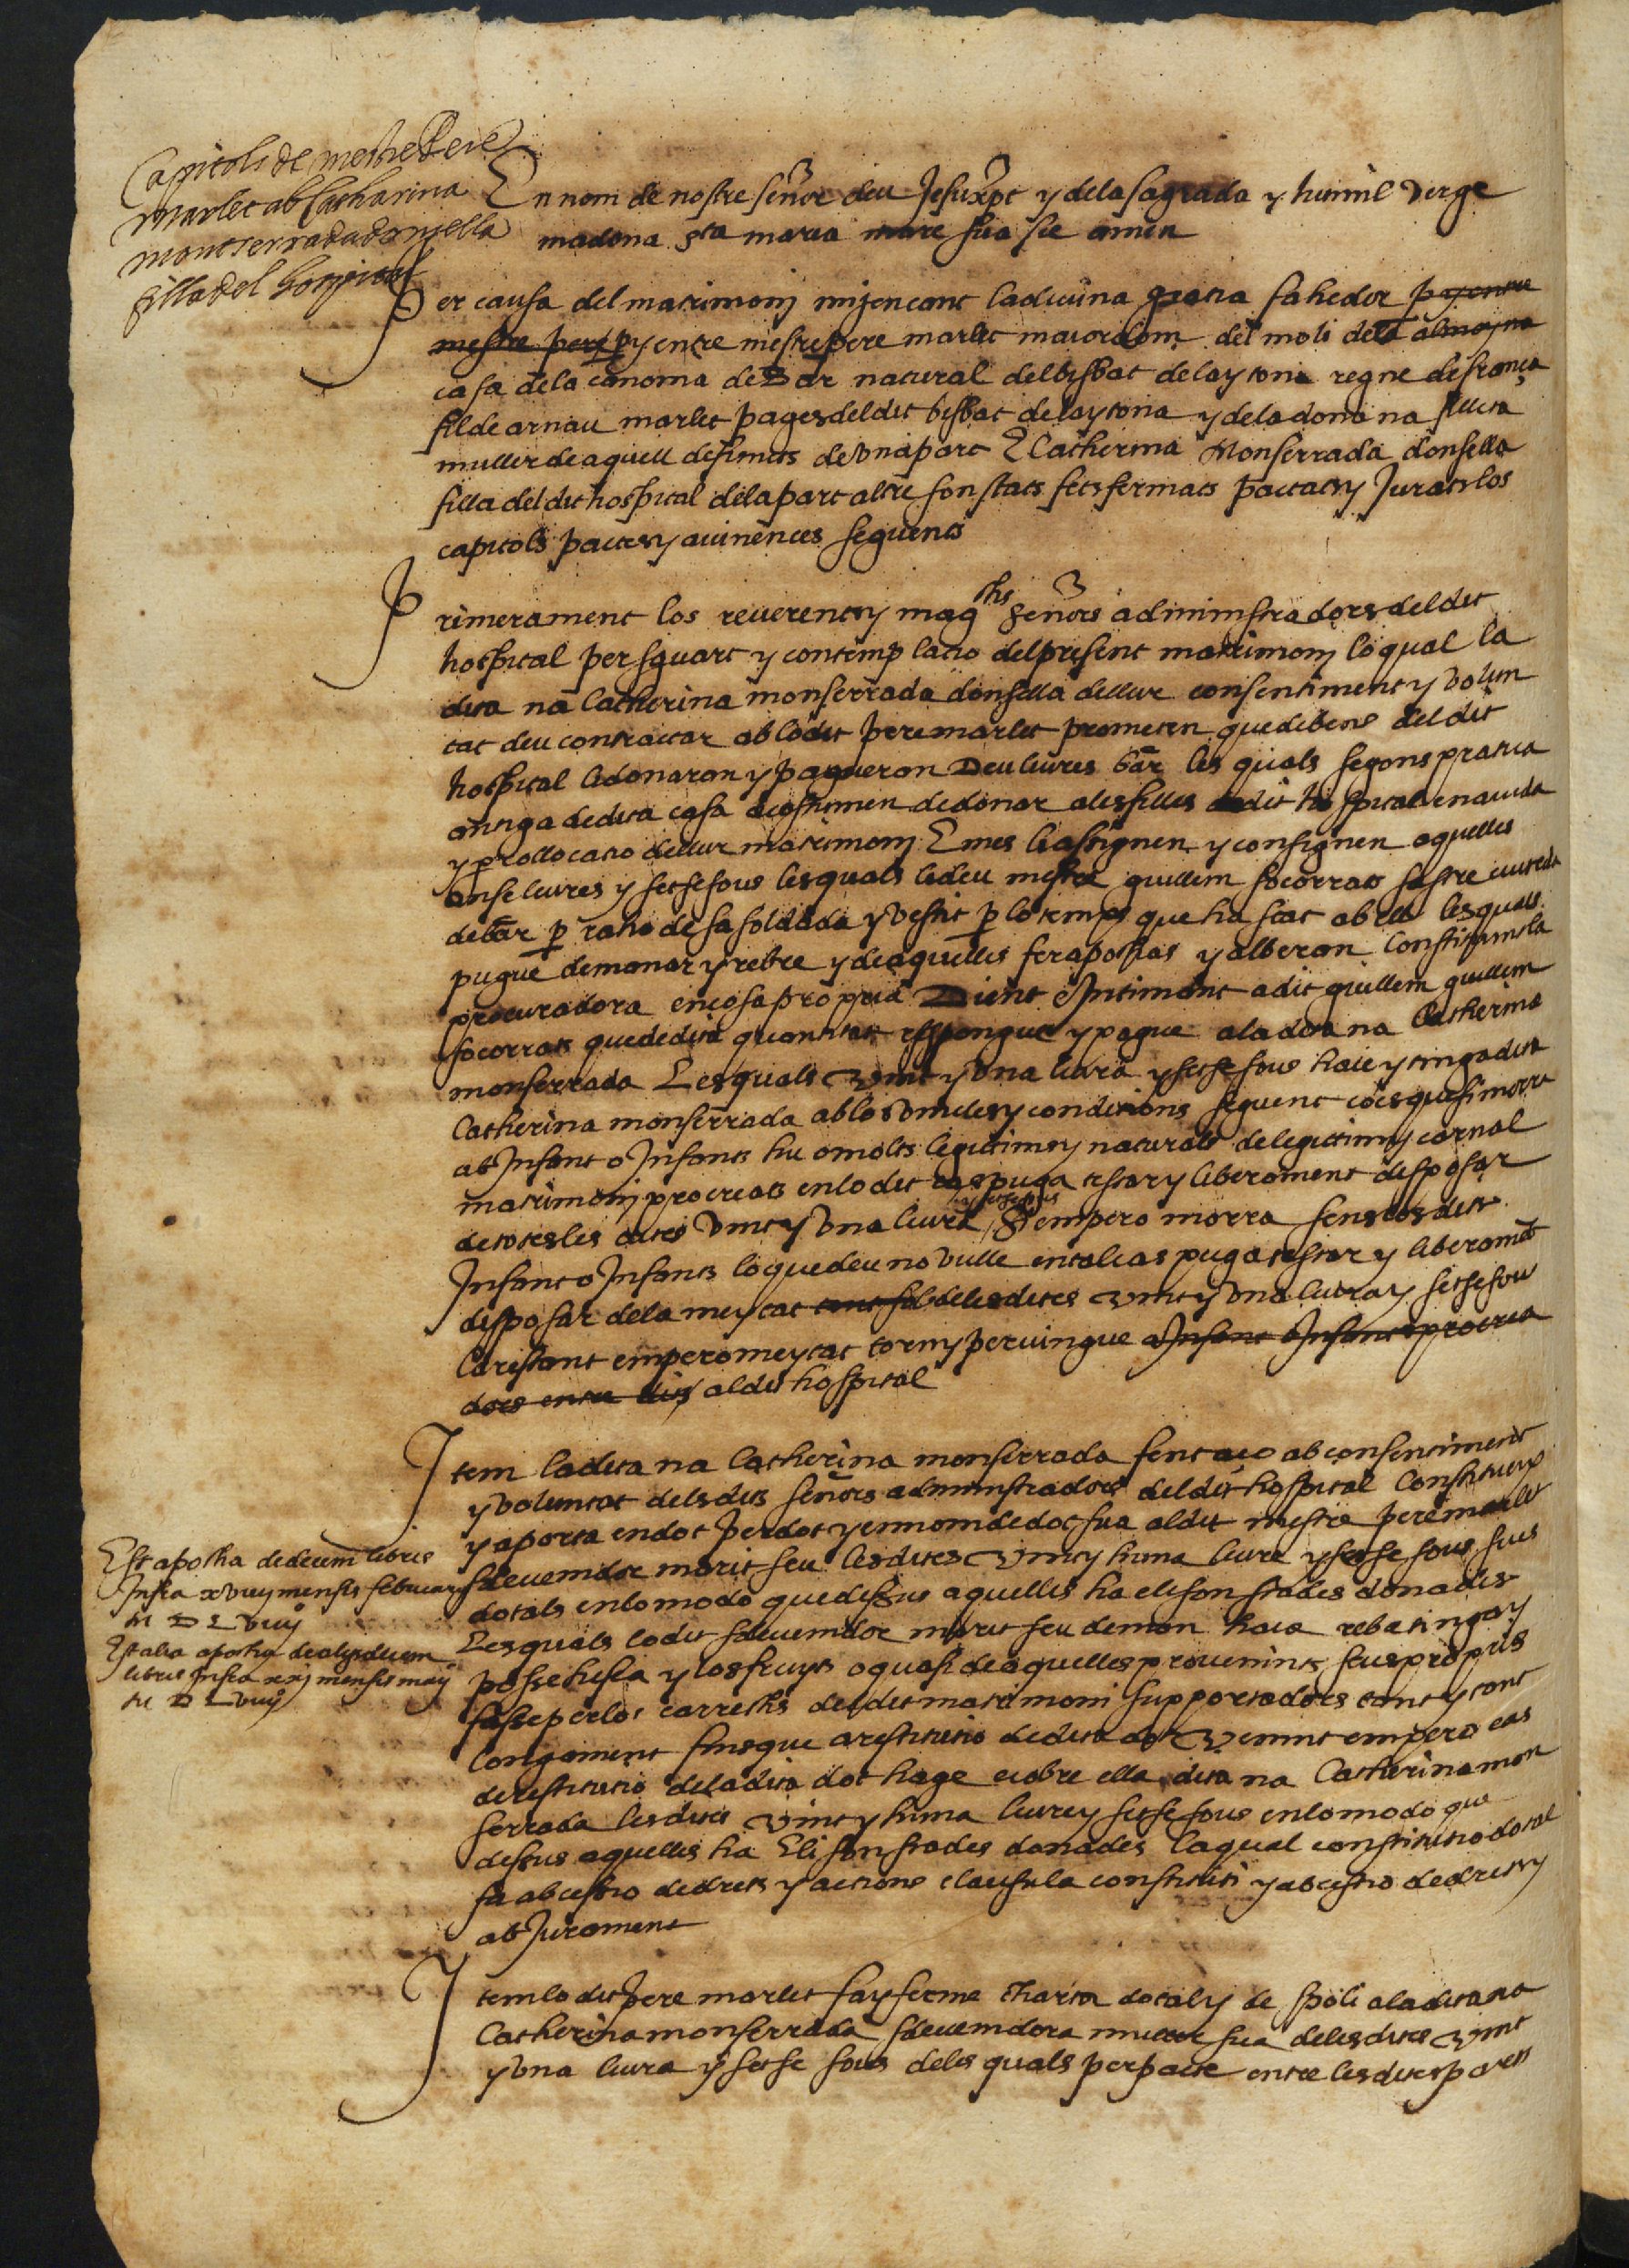 Capitols de mestre Pere
Marlet ab Catharina
montserrada donzella
filla del hospital
En nom de nostre señor deu Jesuxpt y dela sagrada y humil verge
madona sta maria mare sua sie amen
Per causa del matrimonj mijençant la divina gratia fahedor p y entre
mestre pere p y entre mestre pere marlet maiordom del moli dela almoyna
casa dela canonia de Bar natural del bisbat de laytona regne de frança
fill de arnau marlet pages del dit bisbat de laytona y dela dona na
muller de aquell defuncts de una part E Catherina Monserrada donsella
filla del dit hospital dela part altre son stats fets fermats pactats y Jurats los
capitols pactes y avinences seguents
Primerament los reverents y magchs señors administradors del dit
hospital per sguart y contemplacio del present matrimonj lo qual la
dita na Catherina monserrada donsella de llur consentiment y volun
tat deu contractar ab lo dit pere marlet prometen que de bens del dit
hospital li donaran y pagueran Deu liures bar les quals segons pratica
antiga de dita casa acostumen de donar a les filles de dit hospital en aiuda
y collocatio de llur matrimonj E mes li assignen y consignen aquelles
onse liures y setse sous les quals li deu mestre guillem socorrats sastre ciuteda
de bar p raho de sa soldada y vestit p lo temps que ha stat ab ell les quals
pugue demanar y rebre y de aquelles fer apochas y albaran Constituintla
procuradora en cosa propria Dient e Intimant a dit guillem guillem
socorrats que de dita quantitat respongue y pague a la dita na Catherina
monserrada Les quals vint y una liura y setse sous haie y tinga dita
Catherina monserrada ab los vincles y conditions seguent ço es que si morra
ab Infant o Infants hu o molts legittims y naturals de legittim y carnal
matrimonj procreats en lo dit cas puga testar y liberament disposar
de totes les dites vint y una liura y setse sous Si empero morra sens los dits
Infant o Infants lo que deu no vulle en tal cas puga testar y liberamēt
disposar dela meytat tant sol deles dites vint y una liura y setse sous
la restant empero meytat torn y pervingue a Infant o Infants procrea
dors entre ells al dit hospital
Item la dita na Catherina monserrada fent aço ab consentiment
y voluntat dels dits señors administradors del dit hospital Constituex
y aporta en dot per dot y en nom de dot sua al dit mestre pere marlet
sdevenidor marit seu les dites vint y huna liura y setse sous sus
dotals en lo modo que desus aquelles ha eli son stades donades
Les quals lo dit sdevenidor marit seu demon haia reba tinga y
possehesca y los fruyts o quasi de aquelles provenints seus propris
fasse per los carrechs del dit matrimoni supportadors tant y tant
longament fins que a restitutio de dita dot Venint empero cas
de restitutio dela dita dot hage e cobre ella dita na Catherina mon
serrada les dites vint y huna liures y setse sous en lo modo que
desus aquelles ha Eli son stades donades la qual constitutio dotal
fa ab cessio de drets y actions clausula constituti y ab cessio de drets y
ab Jurament
Est apocha de decem libris
Infra xviiij mensis februarij
M D L viiij
Est alia apocha de aliis decem
libris Infra xxj mensis maij
M D L viiij
Item lo dit pere marlet fa y ferme Charta dotal y de spoli a la dita na
Catherina monserrada sdevenidora muller sua deles dites vint
y una liura y setse sous deles quals per pacte entre les dites parts